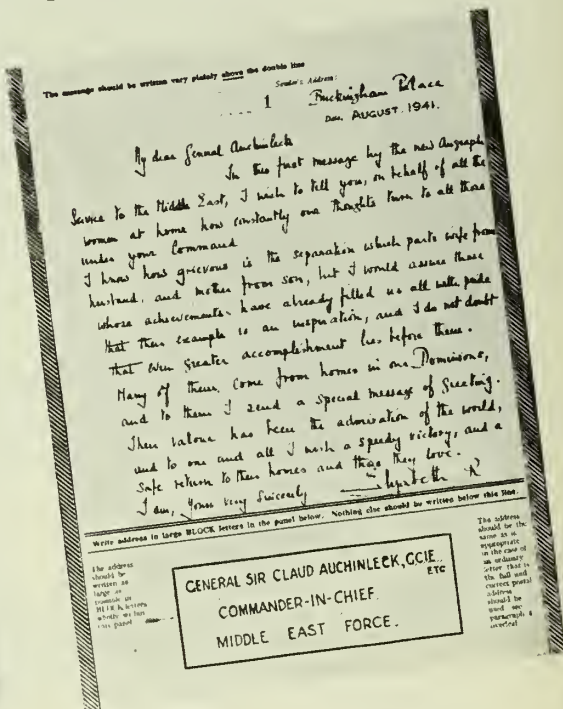 The message should be written very plainly above the double line
Sender's Address:
1 Buckingham Palace
Date AUGUST. 1941.
My dear General Auchinleck
In this first message by the new Airgraph
Service to the Middle East, I wish to tell you, on behalf of all the
women at home how constantly our thoughts turn to all those
under your Command
I know how grievous is the separation which parts wife from
husband, and mother from son, but I would assure those
whose achievements have already filled us all with pride
that their example is an inspiration, and I do not doubt
that even greater accomplishment lies before them.
Many of them, come from homes in our Dominions,
and to them I send a special message of Greeting.
Their valour has been the admiration of the world,
and to one and all I wish a speedy victory, and a
safe return to their homes and those they love.
I am, Yours very Sincerely Elizabeth R
Write address in large BLOCK letters in the panel below. Nothing else should be written below this line.
The address
should be
written in
large
BLOCK letters
wholly within
this panel
GENERAL SIR CLAUD AUCHINLECK, GCIE.. ETC
COMMANDER-IN-CHIEF.
MIDDLE EAST FORCE.
The address
should be the
same as is
appropriate
in the case of
an ordinary
letter that is
the full and
correct postal
address
should be
used see
paragraph 4
overleaf